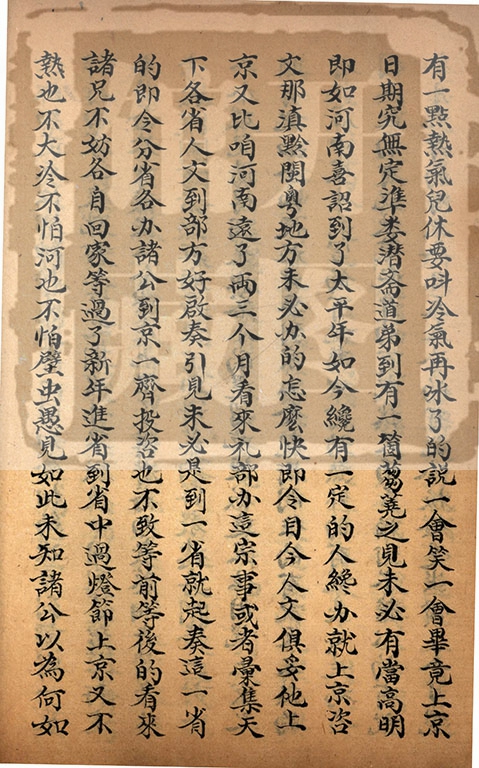 有一點熱氣兒休要呌冷氣再冰了的説一會笑一會畢竟上京
日期究無定準婁潛齋道弟到有一箇芻蕘之見未必有當高明
即如河南喜詔到了太平年如今纔有一定的人纔办就上京咨
文那滇黔閩粵地方未必办的怎麼快即令目今人文俱妥他上
京又比咱河南遠了兩三个月看來礼部办這宗事或者彙集天
下各省人文到部方好啟奏引見未必是到一省就起奏這一省
的即令分省各办諸公到京一齊投咨也不致等前等後的看來
諸兄不妨各自回家等過了新年進省到省中過燈節上京又不
熱也不大冷不怕河也不怕壁虫愚見如此未知諸公以為何如